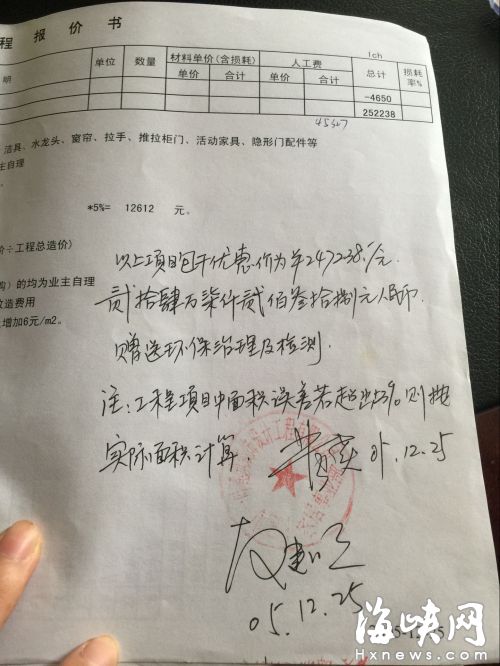 程 报 价 书
lch
明 单位 数量 材料单价(含损耗) 人工费 总计 损耗率%
单价 合计 单价 合计
-4650
252238
洁具、水龙头、窗帘、拉手、推拉柜门、活动家具、隐形门配件等
主自理
*5%= 12612 元。
价÷工程总造价)
购)的均为业主自理
改造费用
增加6元/m2。
以上项目包干优惠价为¥247238/元.
贰拾肆万柒仟贰佰叁拾捌元人民币.
赠送环保治理及检测.
注:工程项目中面积误差若超出3%则按
实际面积计算.
05.12.25
05.12.25
海峡网
Hxnews.com